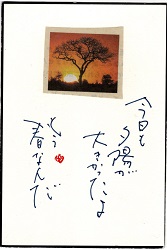 今日も
夕陽が
大きかったよ
もう
春なんだ